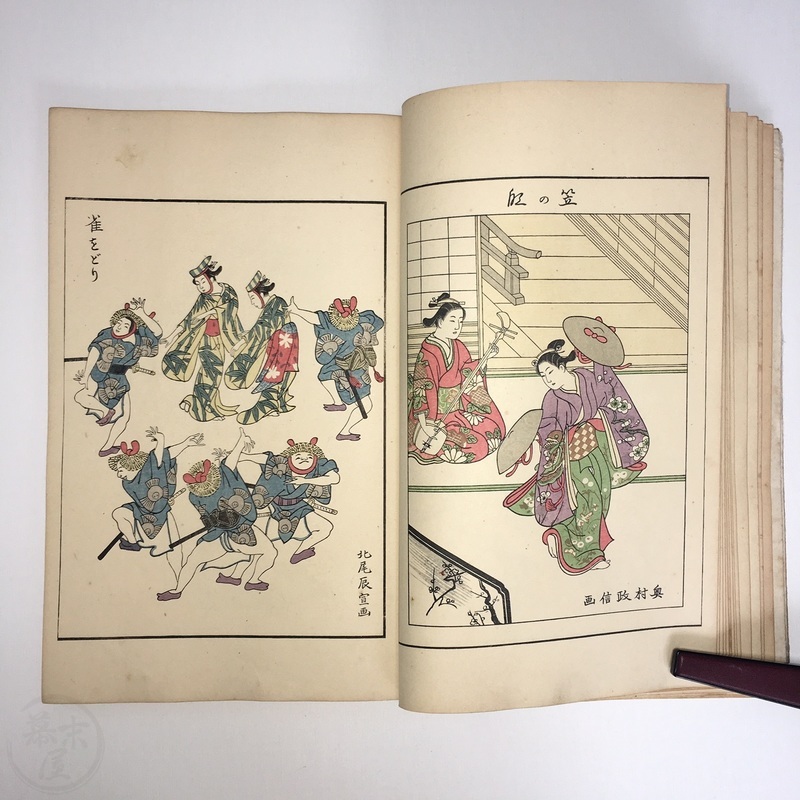 笠の段
奥村政信画
雀をどり
北尾辰宣画
幕末屋